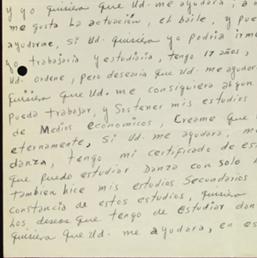 y yo quisiera que Ud. me ayudara, a
me gusta la actuación, el baile, y pue
ayudarme, si Ud. quisiera yo podria irme
yo trabajaria y estudiaria, tengo 17 años,
Ud. ordene, pero desearia que Ud. me ayudar
quisiera que Ud. me consiguiera algun
pueda trabajar, y sostener mis estudios
de Medios economicos, Creame que
eternamente, si Ud. me ayudara, m
danza, tengo mi certificado de es
que puedo estudiar Danza con solo h
tambien hice mis estudios Secundarios
constancia de estos estudios, quisiera
los deseos que tengo de estudiar dan
quisiera que Ud. me ayudara, en es